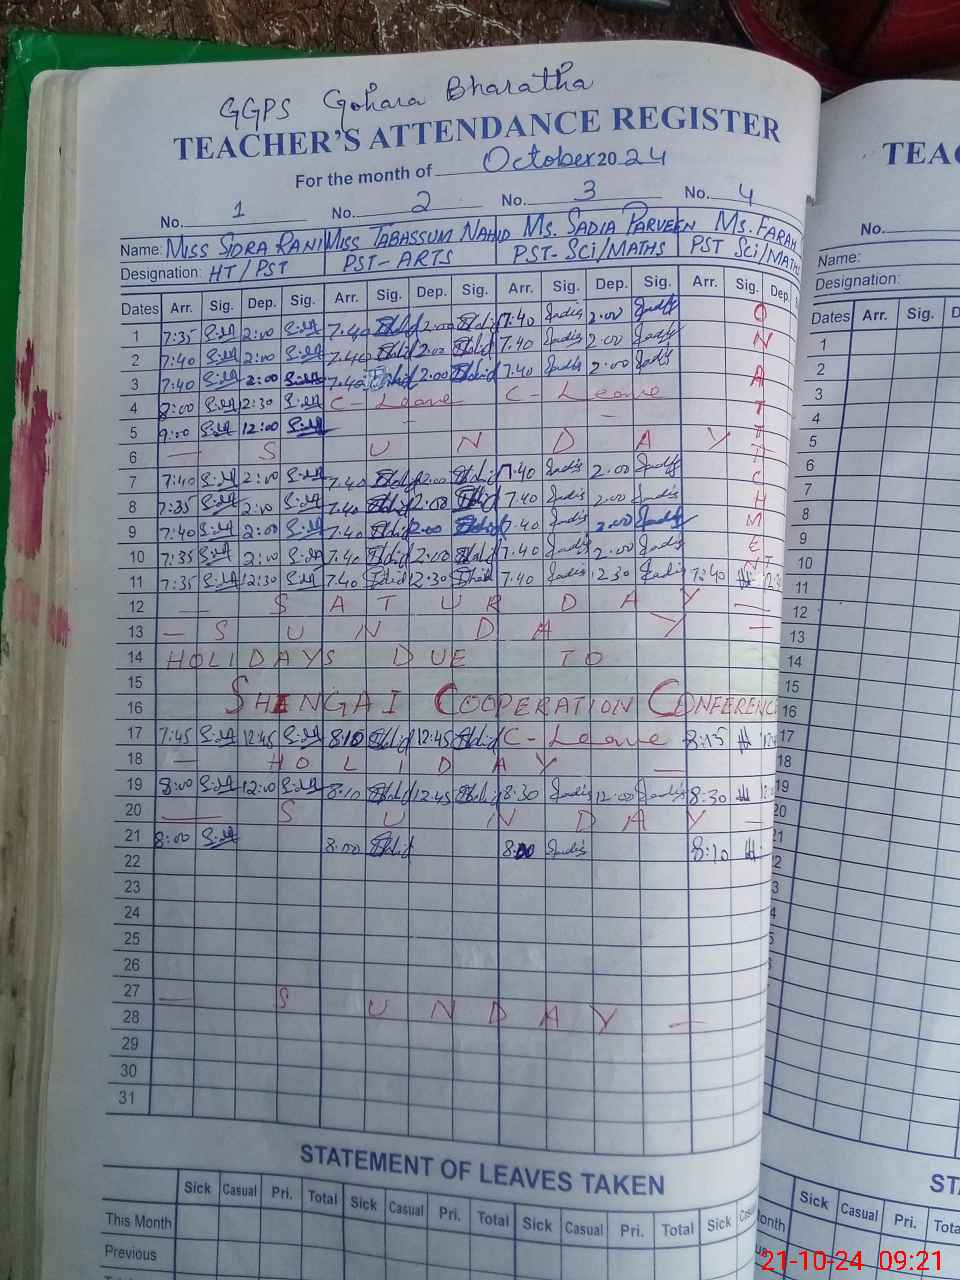 GGPS Gohara Bharatha
TEACHER'S ATTENDANCE REGISTER
For the month of October 2024
No. 1 No. 2 No. 3 No. 4
Name: MISS SIDRA RANI MISS TABASSUM NAHID MS. SADIA PARVEEN MS. FARAH
Designation: HT/PST PST-ARTS PST-SCi/MATHS PST Sci/MATHS
Dates Arr. Sig. Dep. Sig. Arr. Sig. Dep. Sig. Arr. Sig. Dep. Sig. Arr. Sig. Dep.
1 7:35 2:00 7.40 2:00 7.40 Sadia 2.00 Sadia O
2 7:40 2:00 7.40 2.00 7.40 Sadia 2.00 Sadia N
3 7:40 2:00 7.40 2.00 7.40 Sadia 2.00 Sadia
4 8:00 2:30 C-Leave C-Leave A
5 9:00 12:00 T
6 — S U N D A Y T
7 7:40 2:00 7.40 2:00 7.40 Sadia 2.00 Sadia C
8 7:35 2:00 7.40 2:00 7.40 Sadia 2.00 Sadia H
9 7:40 2:00 7.40 2:00 7.40 Sadia 2.00 Sadia M
10 7:35 2:00 7.40 2:00 7.40 Sadia 2.00 Sadia E
11 7:35 12:30 7.40 12.30 7.40 Sadia 12.30 Sadia 7:40
12 — S A T U R D A Y —
13 — S U N D A Y —
14 HOLIDAYS DUE TO
15
16 SHENGAI COOPERATION CONFERENCE
17 7:45 12:45 8:10 12:45 C-Leave 8:15
18 — H O L I D A Y —
19 8:00 12:00 8:10 12:45 8:30 Sadia 12:00 Sadia 8:30
20 — S U N D A Y —
21 8:00 8:00 8:00 Sadia 8:10
22
23
24
25
26
27 — S U N D A Y —
28
29
30
31
STATEMENT OF LEAVES TAKEN
Sick Casual Pri. Total Sick Casual Pri. Total Sick Casual Pri. Total Sick
This Month
Previous
No.
Name:
Designation:
Dates Arr. Sig.
1
2
3
4
5
6
7
8
9
10
11
12
13
14
15
16
17
18
19
20
21
Sick Casual Pri.
21-10-24 09:21